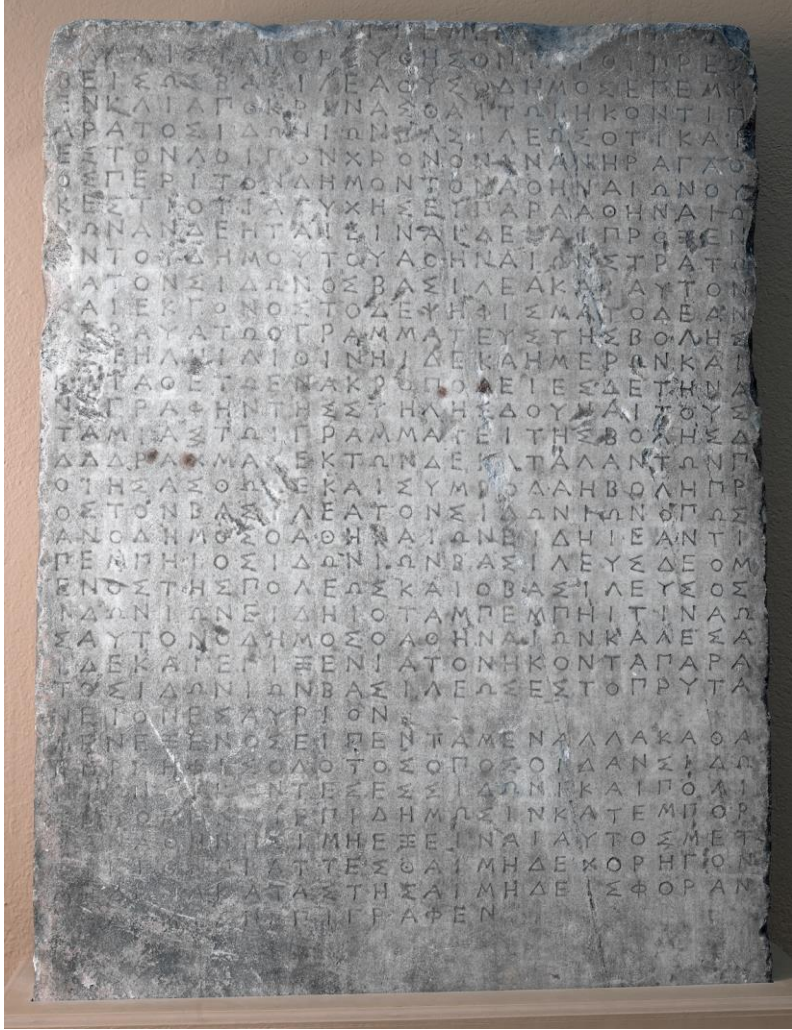 ΛΙΣΤΑΠΟΡΕΥΘΗΣΟΝΤΑΙΟΙΠΡΕΣ
ΒΕΙΣΩΣΒΑΣΙΛΕΑΟΥΣΟΔΗΜΟΣΕΠΕΜΨ
ΕΝΚΑΙΑΠΟΚΡΙΝΑΣΘΑΙΤΩΙΗΚΟΝΤΙΠ
ΑΡΑΤΟΣΙΔΩΝΙΩΝΒΑΣΙΛΕΩΣΟΤΙΚΑΙ
ΕΣΤΟΝΛΟΙΠΟΝΧΡΟΝΟΝΩΝΑΝΗΡΑΓΑΘ
ΟΣΠΕΡΙΤΟΝΔΗΜΟΝΤΟΝΑΘΗΝΑΙΩΝΟΥ
ΚΕΣΤΙΟΤΙΑΤΥΧΗΣΕΙΠΑΡΑΑΘΗΝΑΙΩ
ΝΩΝΑΝΔΕΗΤΑΙΕΙΝΑΙΔΕΚΑΙΠΡΟΞΕΝ
ΟΝΤΟΔΗΜΟΥΤΟΥΑΘΗΝΑΙΩΝΣΤΡΑΤΩ
ΝΑΤΟΝΣΙΔΩΝΟΣΒΑΣΙΛΕΑΚΑΙΑΥΤΟΝ
ΚΑΙΕΚΓΟΝΟΣΤΟΔΕΨΗΦΙΣΜΑΤΟΔΕΑΝ
ΑΓΡΑΨΑΤΩΟΓΡΑΜΜΑΤΕΥΣΤΗΣΒΟΛΗΣ
ΕΣΤΗΛΗΙΛΙΘΙΝΗΙΔΕΚΑΗΜΕΡΩΝΚΑΙ
ΚΑΤΑΘΕΤΩΕΝΑΚΡΟΠΟΛΕΙΕΣΔΕΤΗΝΑ
ΝΑΓΡΑΦΗΝΤΗΣΣΤΗΛΗΣΔΟΥΝΑΙΤΟΥΣ
ΤΑΜΙΑΣΤΩΙΓΡΑΜΜΑΤΕΙΤΗΣΒΟΛΗΣΔ
ΔΔΔΡΑΧΜΑΣΕΚΤΩΝΔΕΚΑΤΑΛΑΝΤΩΝΠ
ΟΙΗΣΑΣΘΩΔΕΚΑΙΣΥΜΒΟΛΑΗΒΟΛΗΠΡ
ΟΣΤΟΝΒΑΣΙΛΕΑΤΟΝΣΙΔΩΝΙΩΝΟΠΩΣ
ΑΝΟΔΗΜΟΣΟΑΘΗΝΑΙΩΝΕΙΔΗΙΕΑΝΤΙ
ΠΕΜΠΗΙΟΣΙΔΩΝΙΩΝΒΑΣΙΛΕΥΣΔΕΟΜ
ΕΝΟΣΤΗΣΠΟΛΕΩΣΚΑΙΟΒΑΣΙΛΕΥΣΟΣ
ΙΔΩΝΙΩΝΕΙΔΗΙΟΤΑΜΠΕΜΠΗΙΤΙΝΑΩ
ΣΑΥΤΟΝΟΔΗΜΟΣΟΑΘΗΝΑΙΩΝΚΑΛΕΣΑ
ΙΔΕΚΑΙΕΠΙΞΕΝΙΑΤΟΝΗΚΟΝΤΑΠΑΡΑ
ΤΟΣΙΔΩΝΙΩΝΒΑΣΙΛΕΩΣΕΣΤΟΠΡΥΤΑ
ΝΕΙΟΝΕΣΑΥΡΙΟΝ
ΜΕΝΕΞΕΝΟΣΕΙΠΕΝΤΑΜΕΝΑΛΛΑΚΑΘΑ
ΠΕΡΚΗΦΙΣΟΔΟΤΟΣΟΠΟΣΟΙΔΑΝΣΙΔΩ
ΝΤΕΣΕΣΣΙΔΩΝΙΚΑΙΠΟΛΙ
ΕΠΙΔΗΜΩΣΙΝΚΑΤΕΜΠΟΡ
ΜΗΕΞΕΙΝΑΙΑΥΤΟΣΜΕΤ
ΑΤΤΕΣΘΑΙΜΗΔΕΧΟΡΗΓΟΝ
ΚΑΤΑΣΤΗΣΑΙΜΗΔΕΙΣΦΟΡΑΝ
ΝΕΠΙΓΡΑΦΕΝ